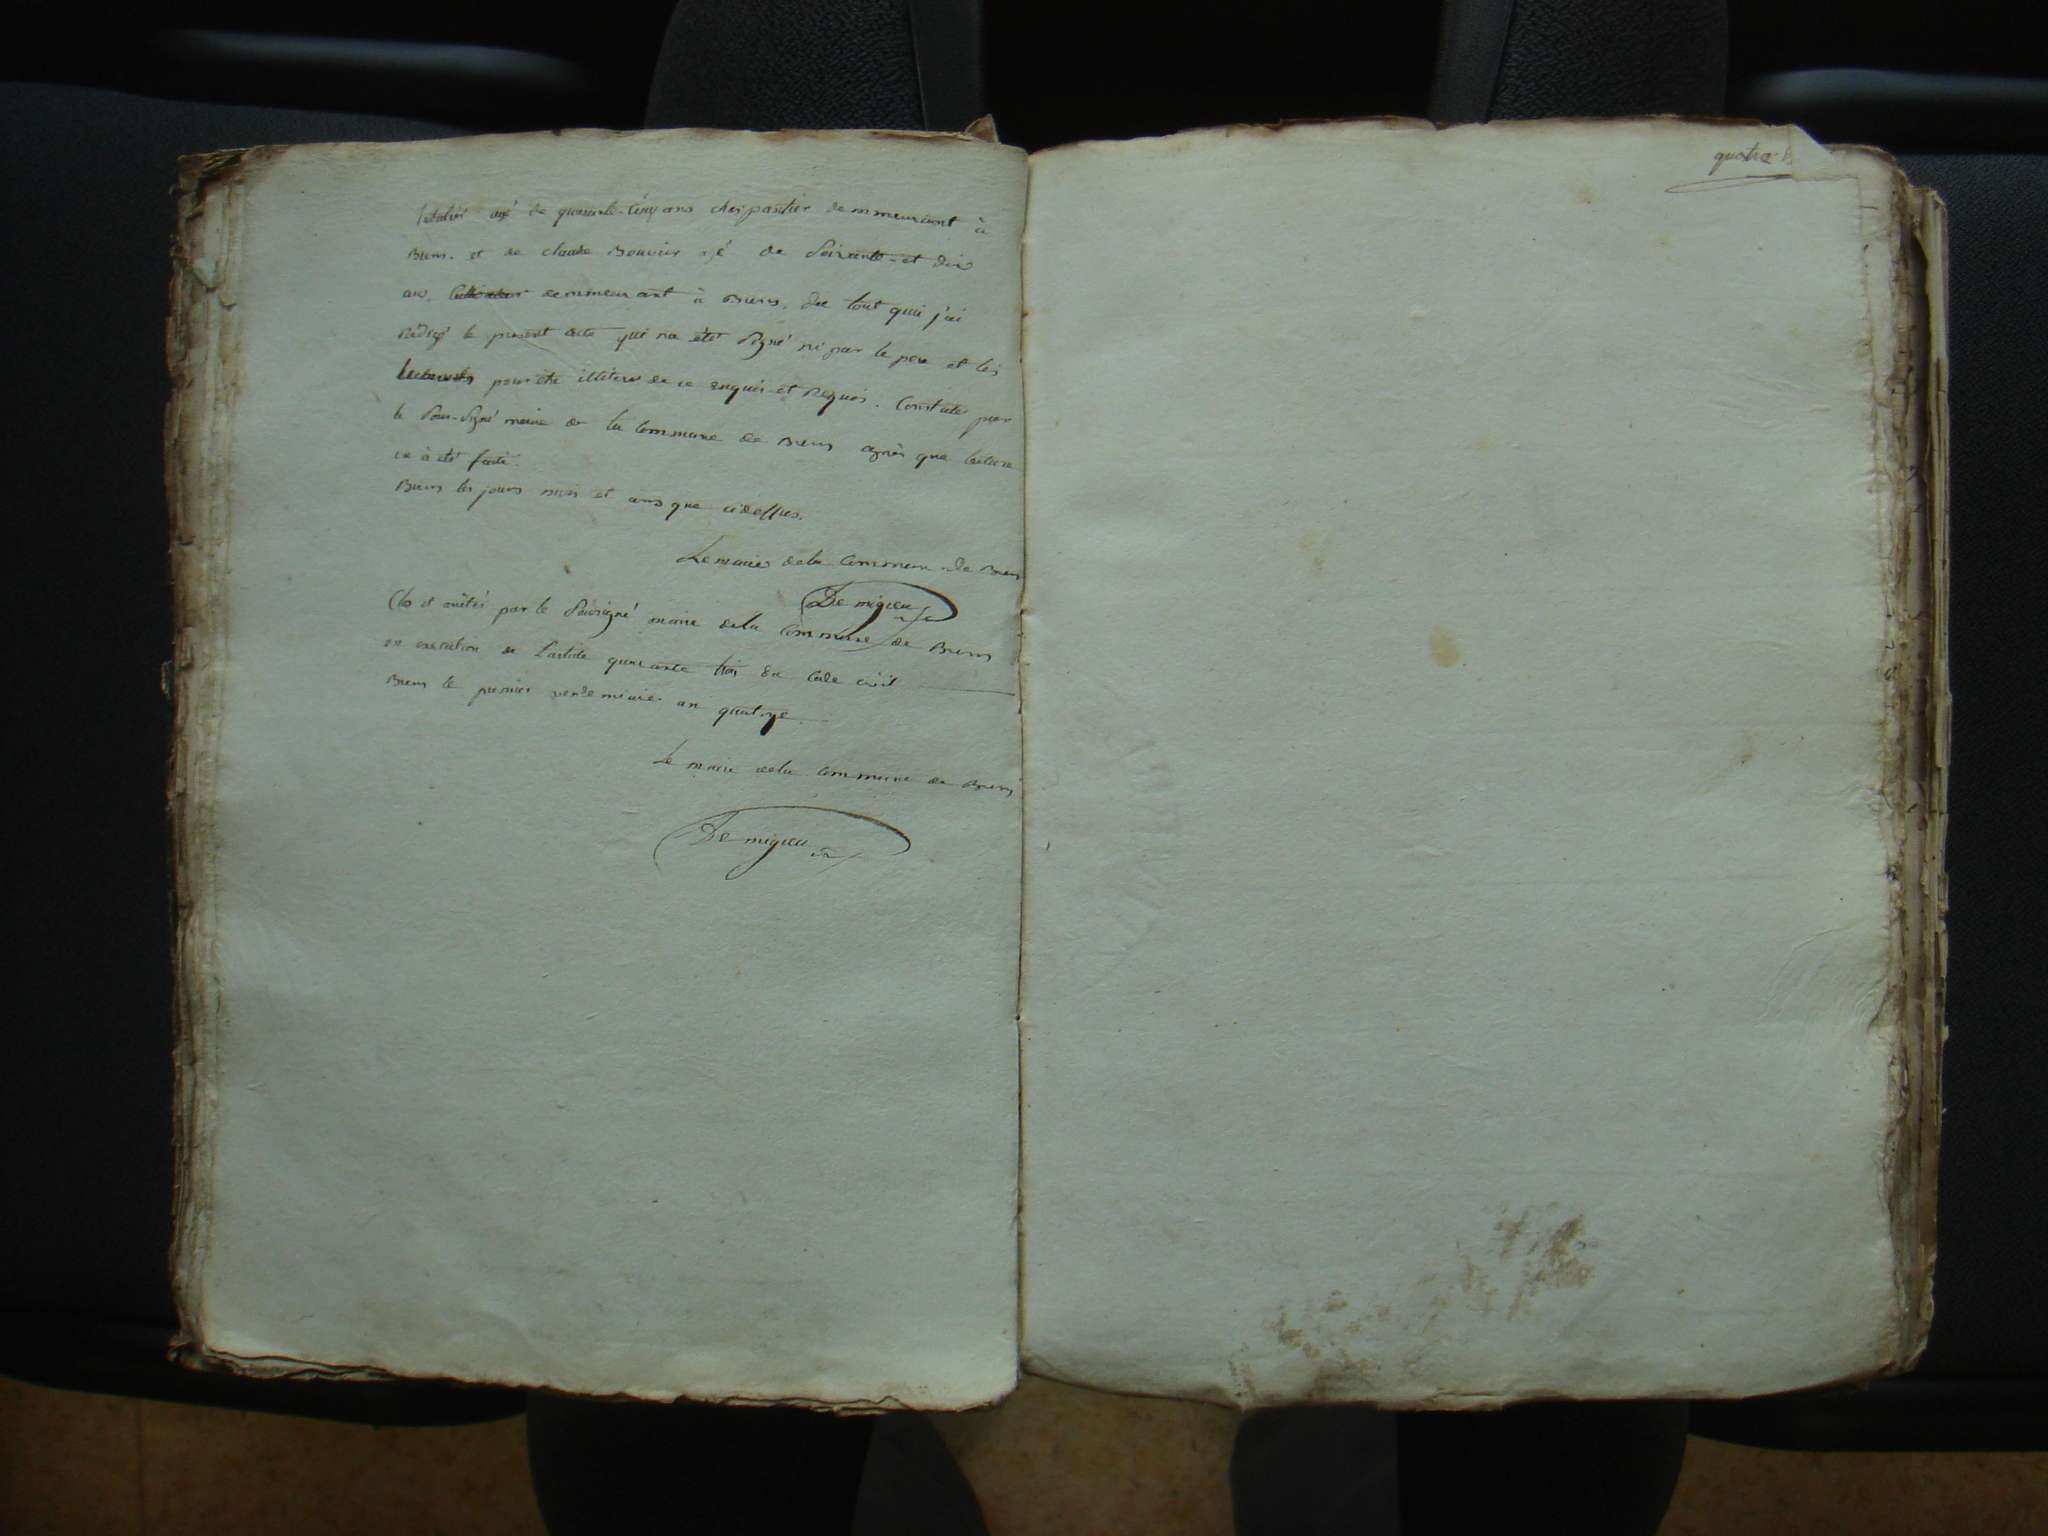 agé de quarante-cinq ans charpantier demmeurant à
Brens. et de claude Bouvier agé de Soixante et dix
ans, demmeurant à Brens, du tout quoi j'ai
rédigé le present acte qui na été Signé ni par le pere et les
pour etre illiteres de ce enquis et Requis. Constaté par
le Sous-Signé maire de la Commune de Brens après que lecture
en à été faite.
Brens les jours mois et ans que cidessus.
Le maire de la Commune de Brens
De migieu
Clos et arêtés par le Sousigné maire de la Commune de Brens
en execution de l'article quarante trois du Code civil
Brens le premier vendemiaire an quatorze.
Le maire de la Commune de Brens
De migieu
quatre